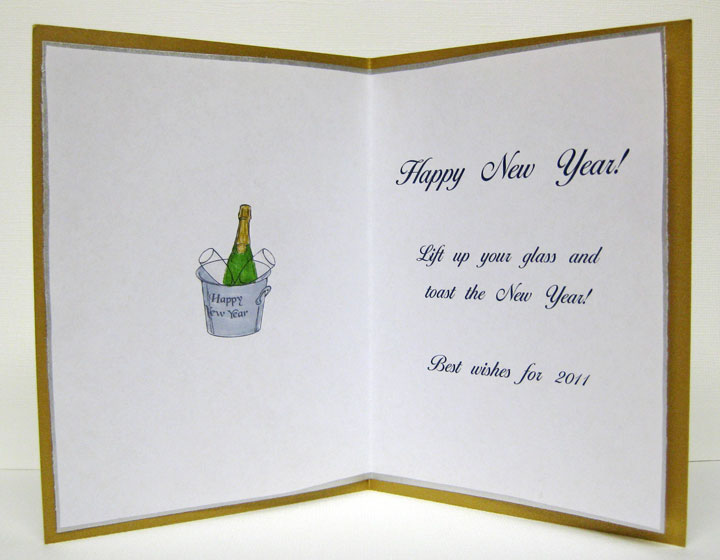 Happy
New Year
Happy New Year!
Lift up your glass and
toast the New Year!
Best wishes for 2011